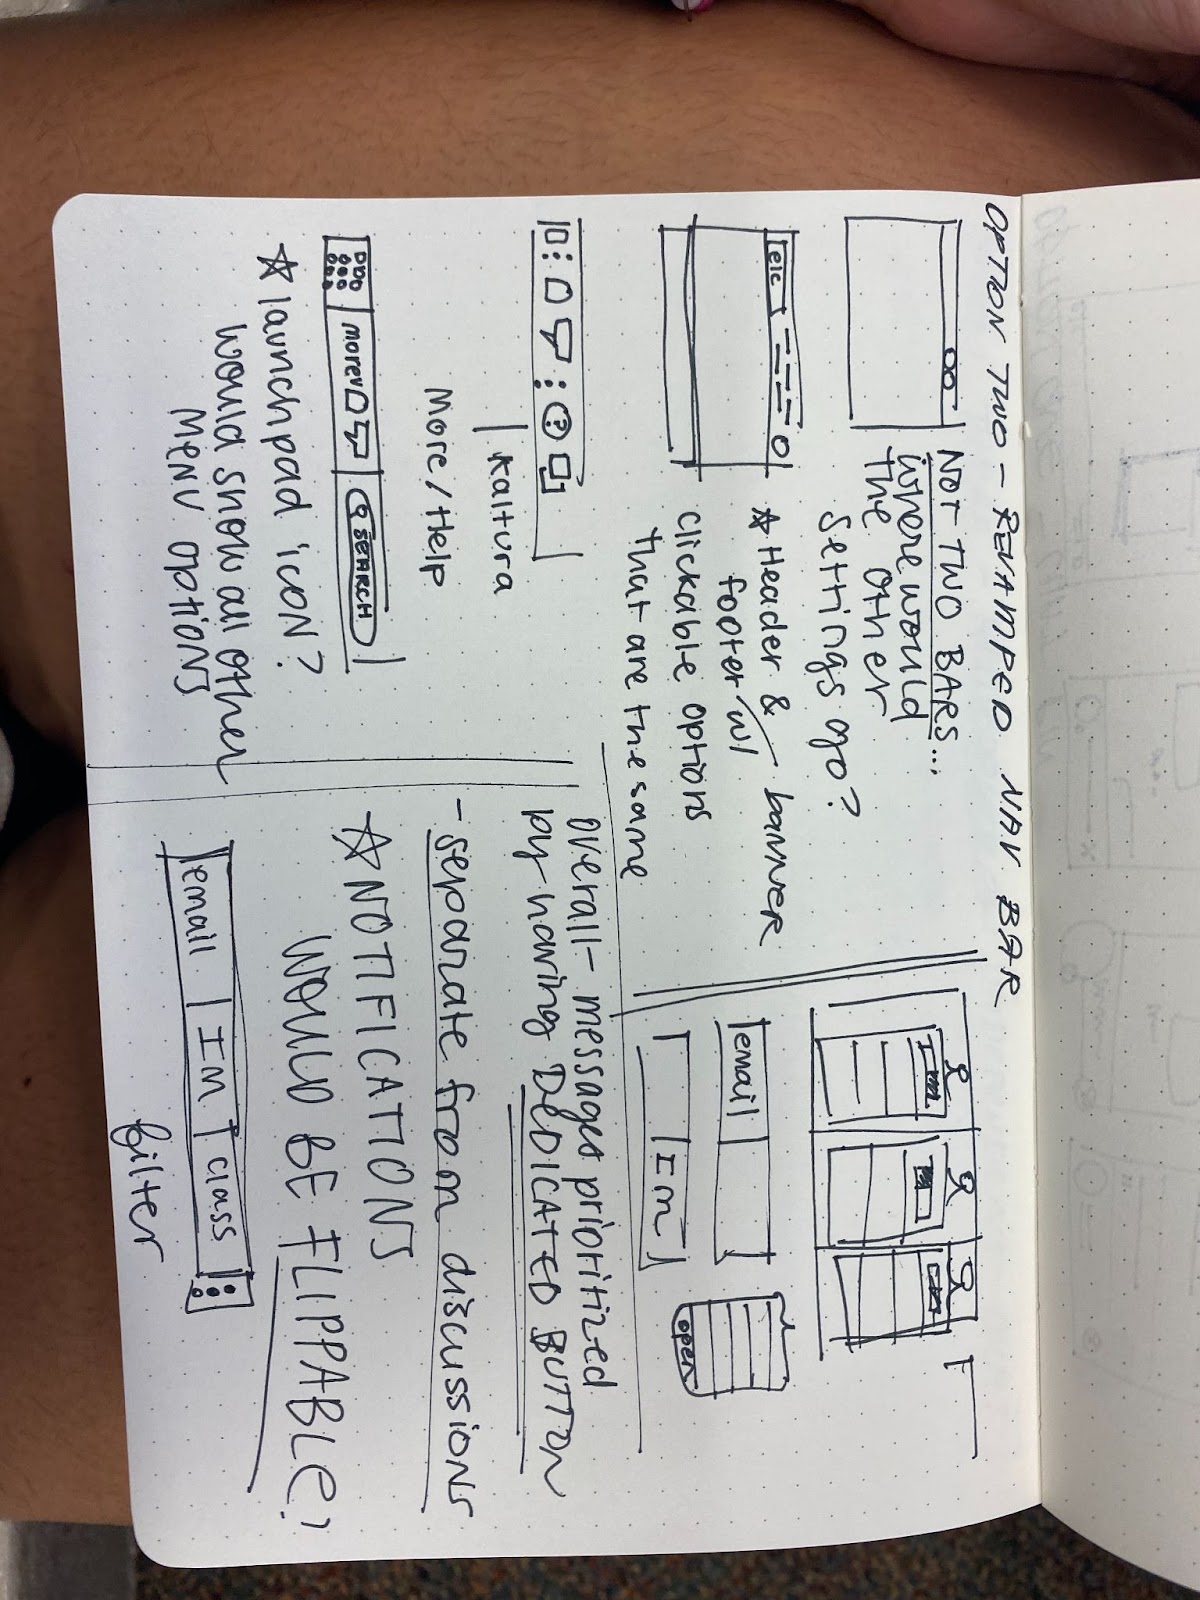 OPTION TWO - REVAMPED NAV BAR
NOT TWO BARS...
where would
the other
settings go?
etc
☆ Header & banner
footer w/
clickable options
that are the same
?
Kaltura
More/Help
more
SEARCH
☆ launchpad icon?
would show all other
menu options
email
IM
open
overall- messages prioritized
by having DEDICATED BUTTON
- separate from discussions
☆ NOTIFICATIONS
WOULD BE FLIPPABLE?
email IM class
filter